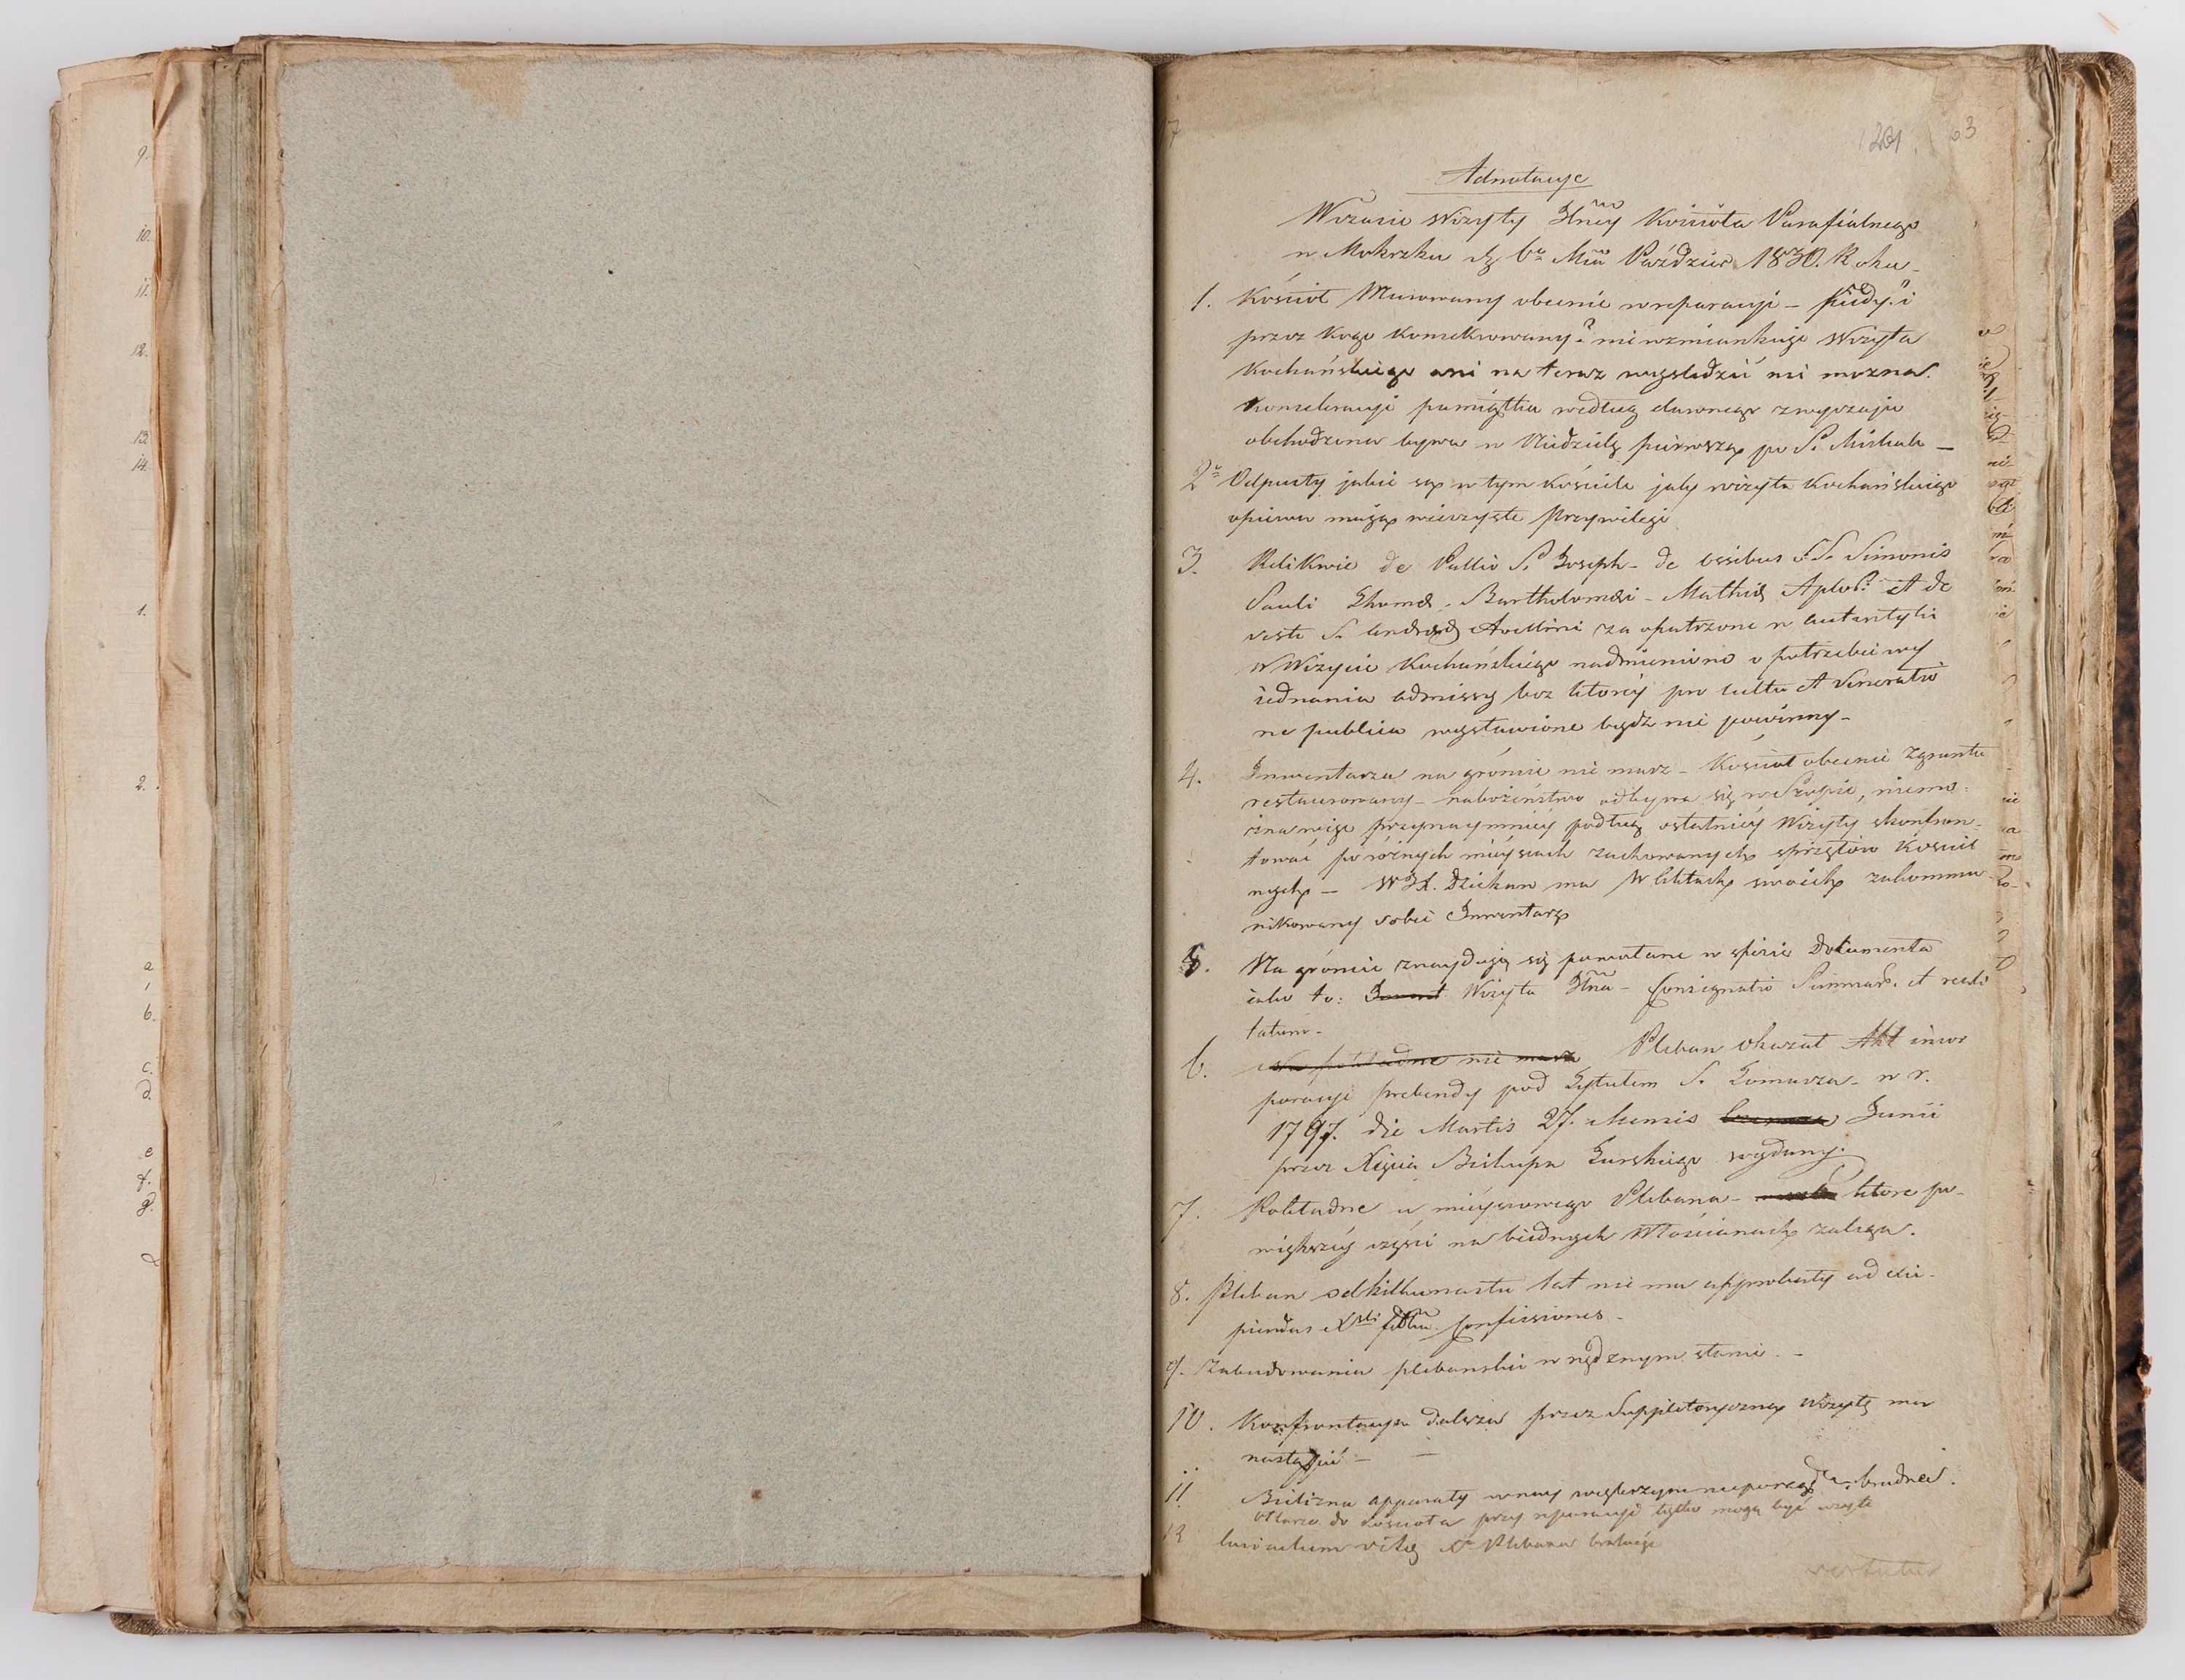 9.
10.
11.
12.
13.
14.
1.
2.
a
b.
c.
d.
e
f.
g.
7
63
Adnotacye
Wczasie Wizyty Gnney Kościoła Parafialnego
w Mokrsku d. 6a Mca Paździer. 1830. Roku
1. Kościoł Murowany obecnie w reparacyi – kiedy? i
przez kogo konsekrowany? nie wzmiankuje Wizyta
Kochańskiego ani na teraz wyśledzić nie można.
Konsekracyi pamiątka według dawnego zwyczaju
obchodzona bywa w Niedzielę pierwszą po S. Michale –
2o Odpusty jakie są w tym Kościele jak wizyta Kochańskiego
opiewa mają wieczyste Przywileje
3. Relikwie de Pallio S. Joseph – de ossibus S.S. Simonis
Pauli Thomæ – Bartholomæi – Mathiæ Aplor: et de
veste S. Andreæ Avellini zaopatrzone w autentyki
W Wizycie Kochańskiego nadmieniono o potrzebie wy
iednania admissy bez ktorey pro cultu et Veneratio
ne publica wystawione bydz nie powinny –
4. Inwentarza na gróncie nie masz – Kościoł obecnie zgruntu
restaurowany – nabożeństwo odbywa się w Szopie, niemo-
żna więc przynaymniey podług ostatniey Wizyty skonfron-
tować po różnych mieyscach zachowanych sprzętów Kościel
nych – WJX. Dziekan ma w Aktach swoich zakommu-
nikowany sobie Inwentarz
5. Na gróncie znayduią się powołane w spisie Dokumenta
iako to: Wizyta Gnna – Consignatio Summar. et reali
tatum –
6. Na pokładne nie masz Pleban okazał Akt inkor
poracyi prebendy pod Tytułem S. Tomasza – w r.
1797. die Martis 27. Mensis Junii
przez Xięcia Biskupa Turskiego wydany.
7. Pokładne u mieyscowego Plebana – ktore po
większey części na biednych Włościanach zalega.
8. Pleban od kilkunastu lat nie ma approbaty ad exci-
piendas Xsti fidelium confessiones –
9. Zabudowania plebanskie w nędznym stanie. –
10. Konfrontacya dalsza przez Suppletoryczną Wizytę ma
nastąpić –
11 Bielizna apparaty w naywiększym nieporządku, brudne.
Ołtarze do kościoła przy reparacyi tylko mogą być wzięte
12 Curiculum vitæ Xa Plebana brakuie
vertatur